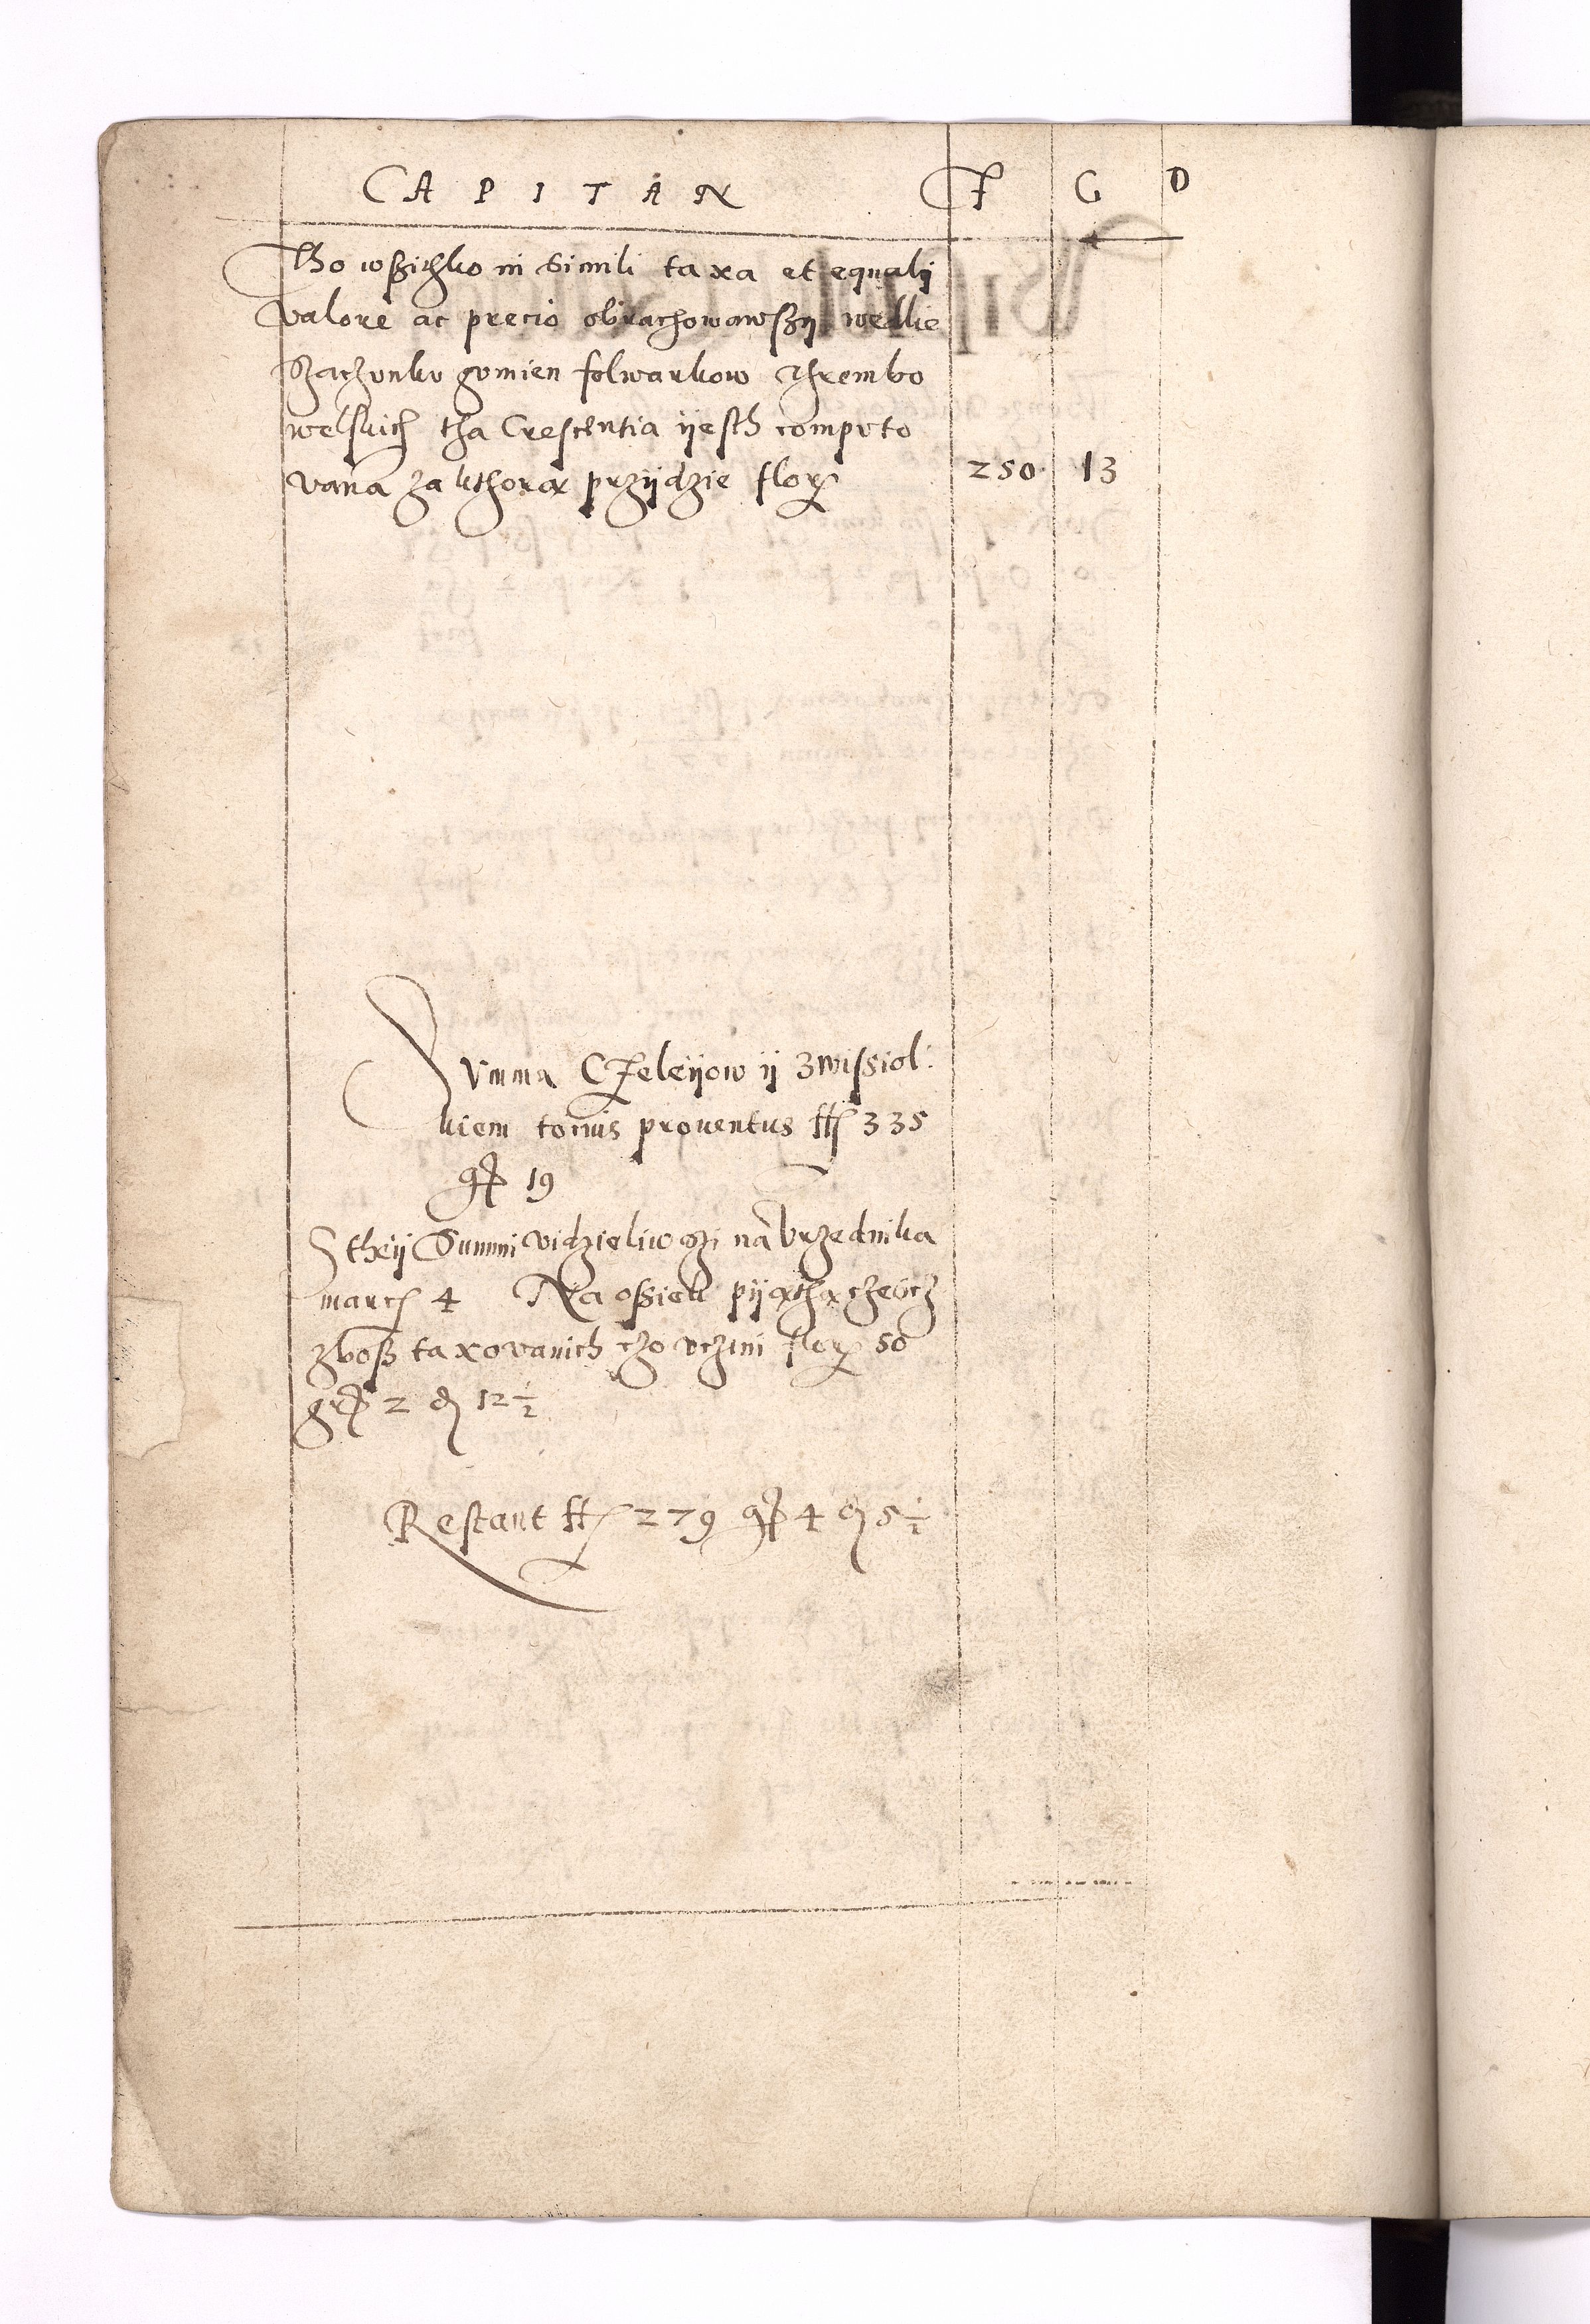 CAPITAN F G D
Tho wßithko in simili taxa et equalij
valore ac precio obrachowawßy wedlie
Szaczunku gumien folwarkow Thrembo
welskich tha Crescentia ijesth computo
vana za kthorą przijdzie flor 250 13
Summa Czeleijow ij zwissiol:
kiem tocius prouentus ff 335
gr 19
S theij Summi vidzieliwszi na vrzednika
march 4 Na oßiek pijątha czescz
zboß taxovanich czo vczini flor 50
gr 2 d 12 1/2
Restant ff 279 gr 4 d 5 1/2